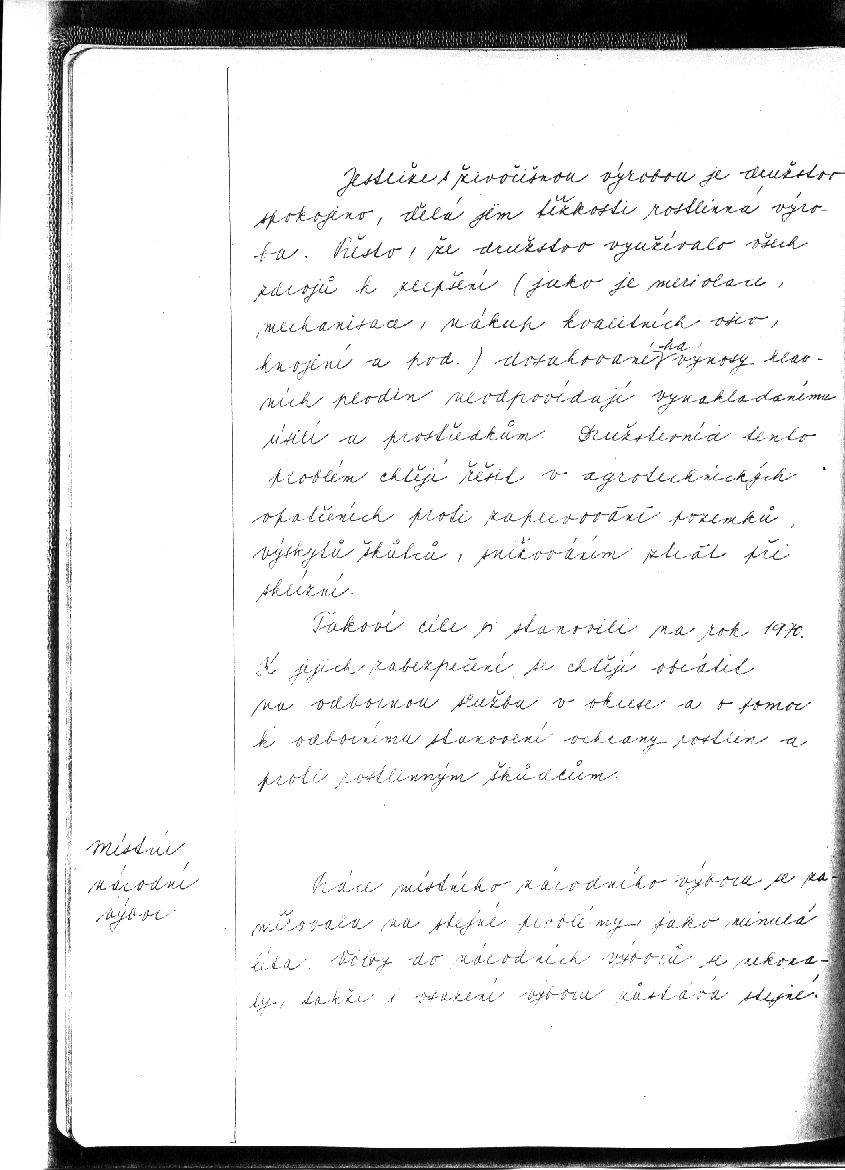 Jestliže s živočišnou výrobou je družstvo
spokojeno, dělá jim těžkosti rostlinná výro-
ba. Přesto, že družstvo využívalo všech
zdrojů k zlepšení (jako je meliorace,
mechanisace, nákup kvalitních osiv,
hnojení a pod.) dosahované ha výnosy hlav-
ních plodin neodpovídají vynakládanému
úsilí a prostředkům. Družstevníci tento
problém chtějí řešit v agrotechnických
opatřeních proti zaplevování pozemků,
výskytů škůdců, snižováním ztrát při
sklizni.
Takové cíle si stanovili na rok 1970.
K jejich zabezpečení se chtějí obrátit
na odbornou službu v okrese a o pomoc
k odbornému stanovení ochrany rostlin a
proti rostlinným škůdcům.
Místní
národní
výbor
Práce místního národního výboru se za-
měřovala na stejné problémy jako minulá
léta. Volby do národních výborů se nekona-
ly, takže i osazení výboru zůstává stejné.